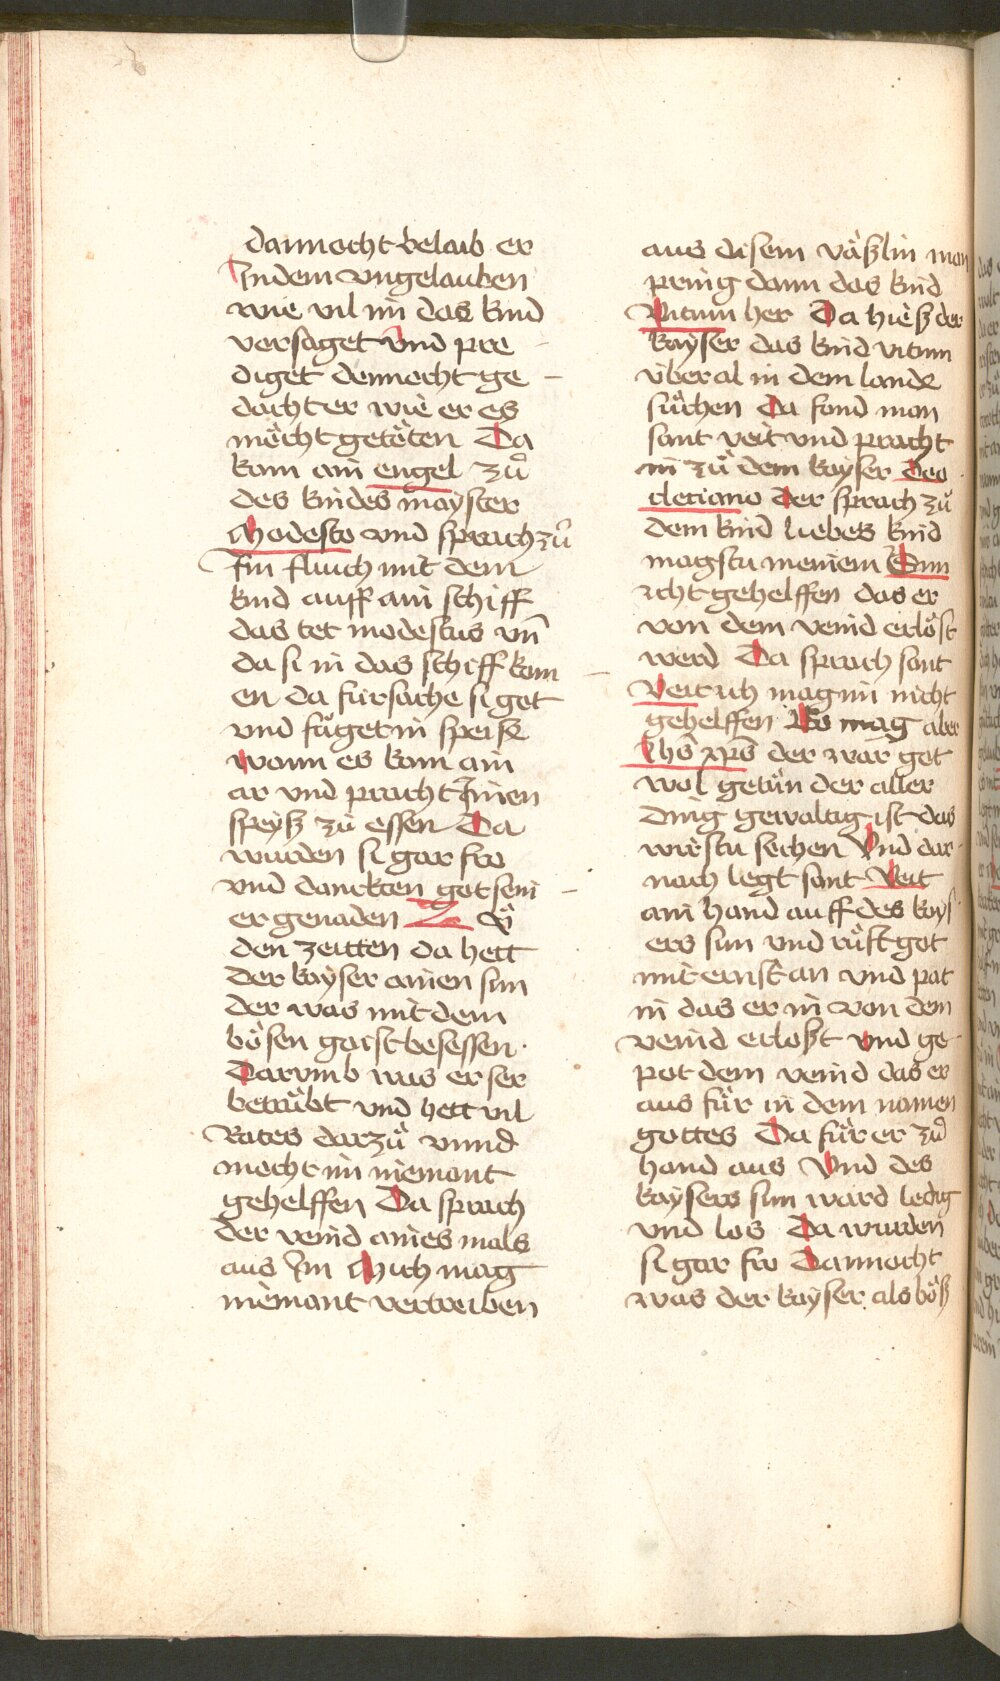 dannocht belaib er
Indem vngelauben
wie vil im das kind
versaget vnd pre
diget dennocht ge
dacht er wie er es
möcht getöten Da
kam ain engel zuͦ
des kindes mayster
Modesto vnd sprach zuͦ
Im fluich mit dem
kind auff ain schiff
das tet modestus vn̄
da si in das schiff kom
en da fürsache si got
vnd füget in speiß
wann es kam ain
ar vnd pracht Jnen
speyß zü essen Da
wurden si gar fro
vnd danckten got sein
er genaden Zü
den zeitten da hett
der kayser ainen sun
der was mit dem
bösen gaist besessen
Darvmb was er ser
betrübt vnd hett vil
Rates darzü vnnd
mocht im niemant
gehelffen Da sprach
der veind aines mals
aus Im Mich mag
niemant vertreiben
aus disem väßlin man
pring dann das kind
Vitum her Da hieß der
kayser das kind vitum
vberal in dem lande
süchen Da fand man
sant veit vnd pracht
in zü dem kayser Deo
cleciano Der sprach zü
dem kind liebes kind
magstu meinem Sun
icht gehelffen das er
von dem veind erlöst
werd Da sprach sant
Veit ich mag im nicht
gehelffen Es mag aber
Jhs̄ xp̄s der war got
wol getün der aller
ding gewaltig ist das
wirstu sechen Vnd dar
nach legt sant Veit
ain hand auff des kays
ers sun vnd rüft got
mit ernst an vnd pat
in das er in von dem
veind erloßt vnd ge
pot dem veind das er
aus für in dem namen
gottes Da für er zü
hand aus Vnd des
kaysers sun ward ledig
vnd los Da wurden
si gar fro Dannocht
was der kayser als böß